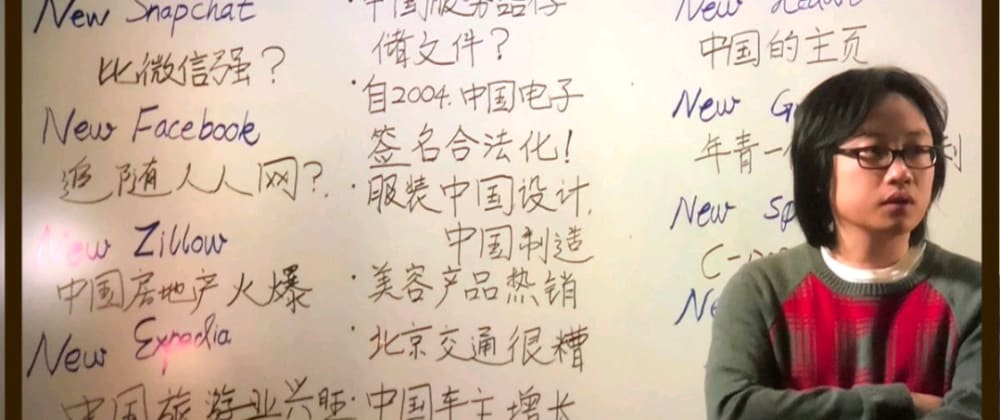 New Snapchat
比微信强?
New Facebook
追随人人网?
New Zillow
中国房地产火爆
New Expedia
中国旅游业兴旺
·中国服务器存
储文件?
·自2004.中国电子
签名合法化!
·服装中国设计.
中国制造
·美容产品热销
·北京交通很糟
·中国车主增长
New
中国的主页
New
年青一
New
C-